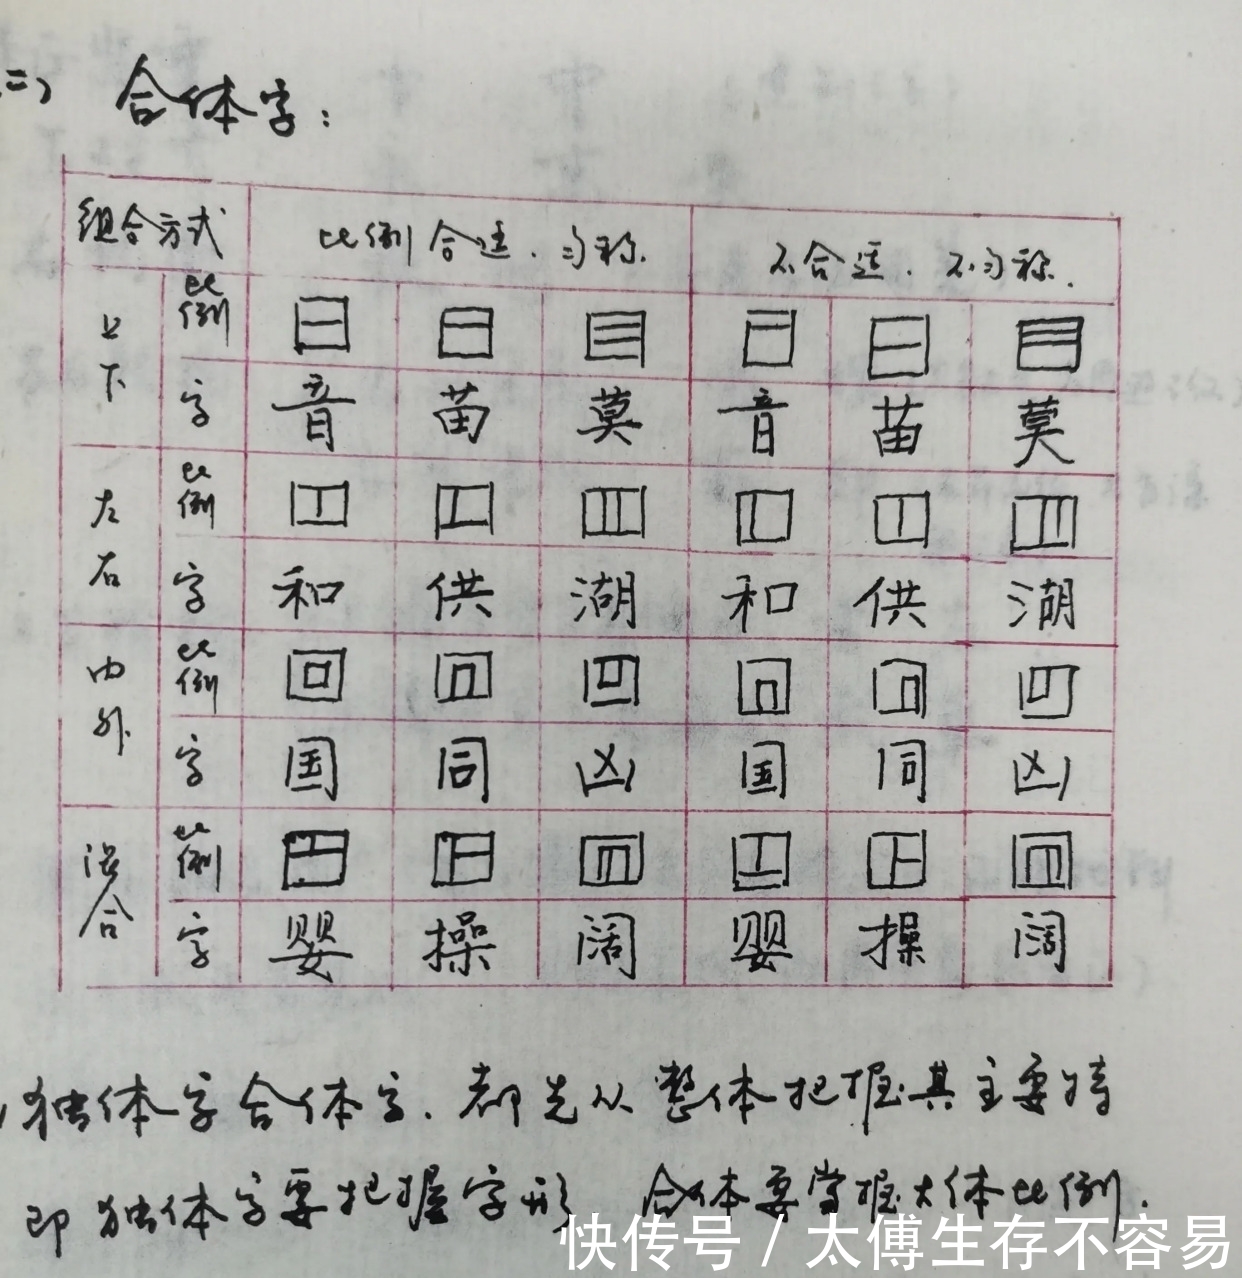 二、 合体字:
组合方式 比例合适、匀称. 不合适、不匀称.
上下 比例
字 音 苗 莫 音 苗 莫
左右 比例
字 和 供 湖 和 供 湖
内外 比例
字 国 同 凶 国 同 凶
混合 比例
字 婴 操 阔 婴 操 阔
独体字合体字.都先从整体把握其主要特
即独体字要把握字形 合体要掌握大体比例.
快传号 / 太傅生存不容易